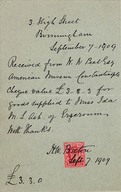 3 High Street
Birmingham
September 7. 1909
Received from W. W. Peet Esq
American Mission Constantinople
Cheque value £3.3.0 for
goods supplied to Miss Ida
M. S. of Erzeroum.
With thanks
Sept. 7 1909
£3.3.0